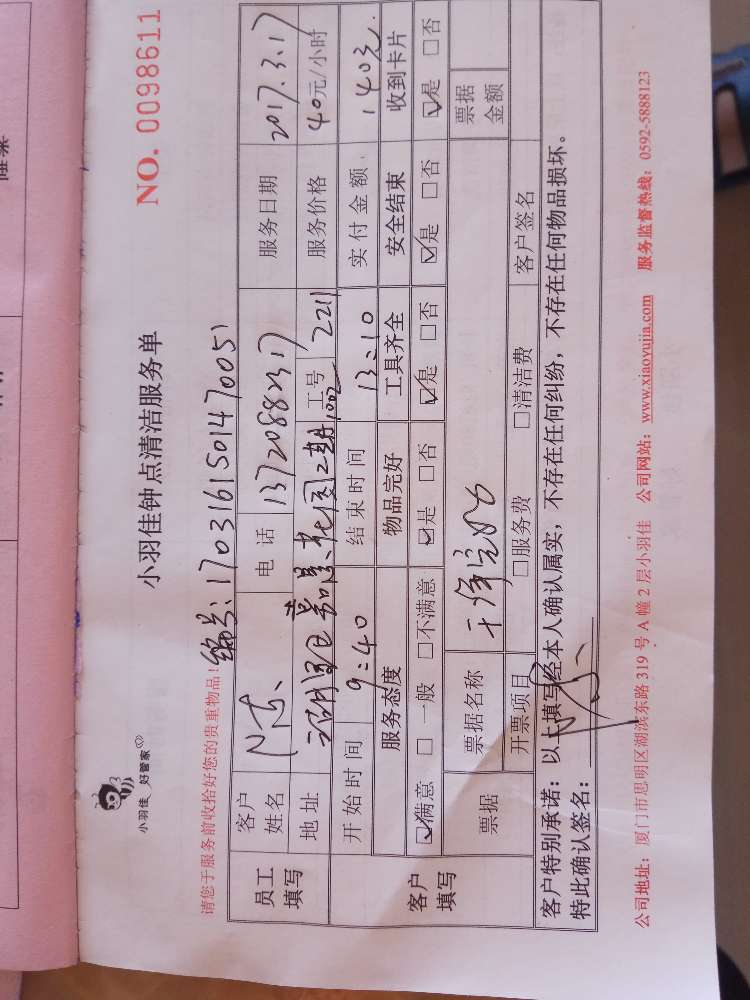 小羽佳 好管家
小羽佳钟点清洁服务单
NO. 0098611
请您于服务前收拾好您的贵重物品！
编号: 170316150147005
员工填写
客户姓名 陈 电话 13720882317 服务日期 2017.3.17
地址 花园 1002 工号 2211 服务价格 40元/小时
开始时间 9:40 结束时间 13:10 实付金额 140元
客户填写
服务态度 物品完好 工具齐全 安全结束 收到卡片
☑满意 □一般 □不满意 ☑是 □否 ☑是 □否 ☑是 □否 ☑是 □否
票据 票据名称 票据金额
开票项目 □服务费 □清洁费 客户签名
客户特别承诺：以上填写经本人确认属实，不存在任何纠纷，不存在任何物品损坏。
特此确认签名：
公司地址：厦门市思明区湖滨东路 319 号 A 幢 2 层小羽佳 公司网站：www.xiaoyujia.com 服务监督热线：0592-5888123